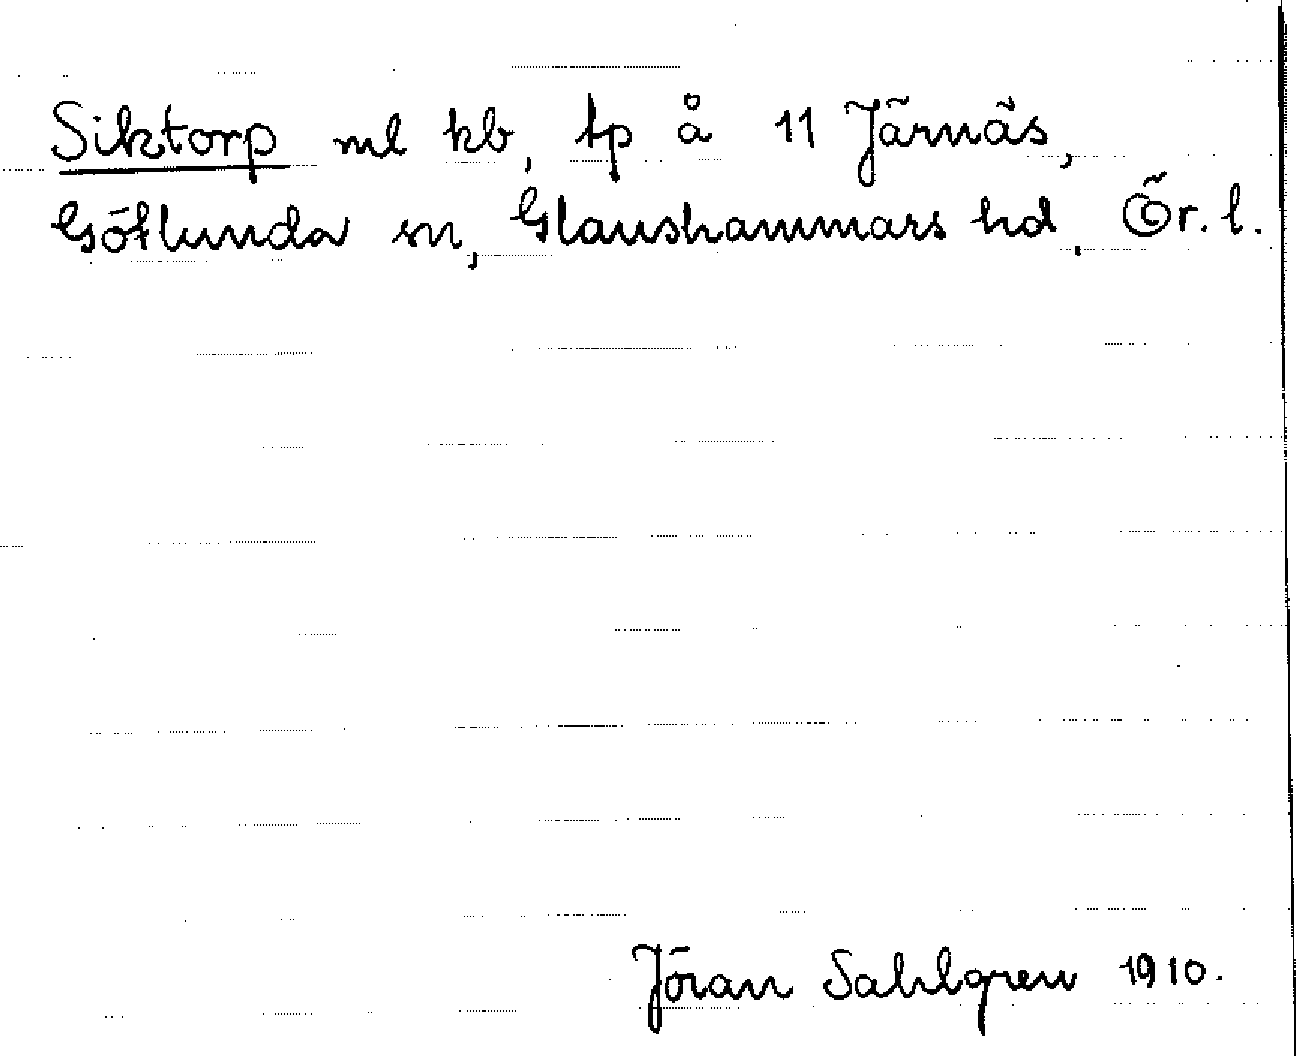 Siktorp ml kb, tp å 11 Järnäs,
Götlunda sn, Glanshammars hd, Ör. l.
Jöran Sahlgren 1910.